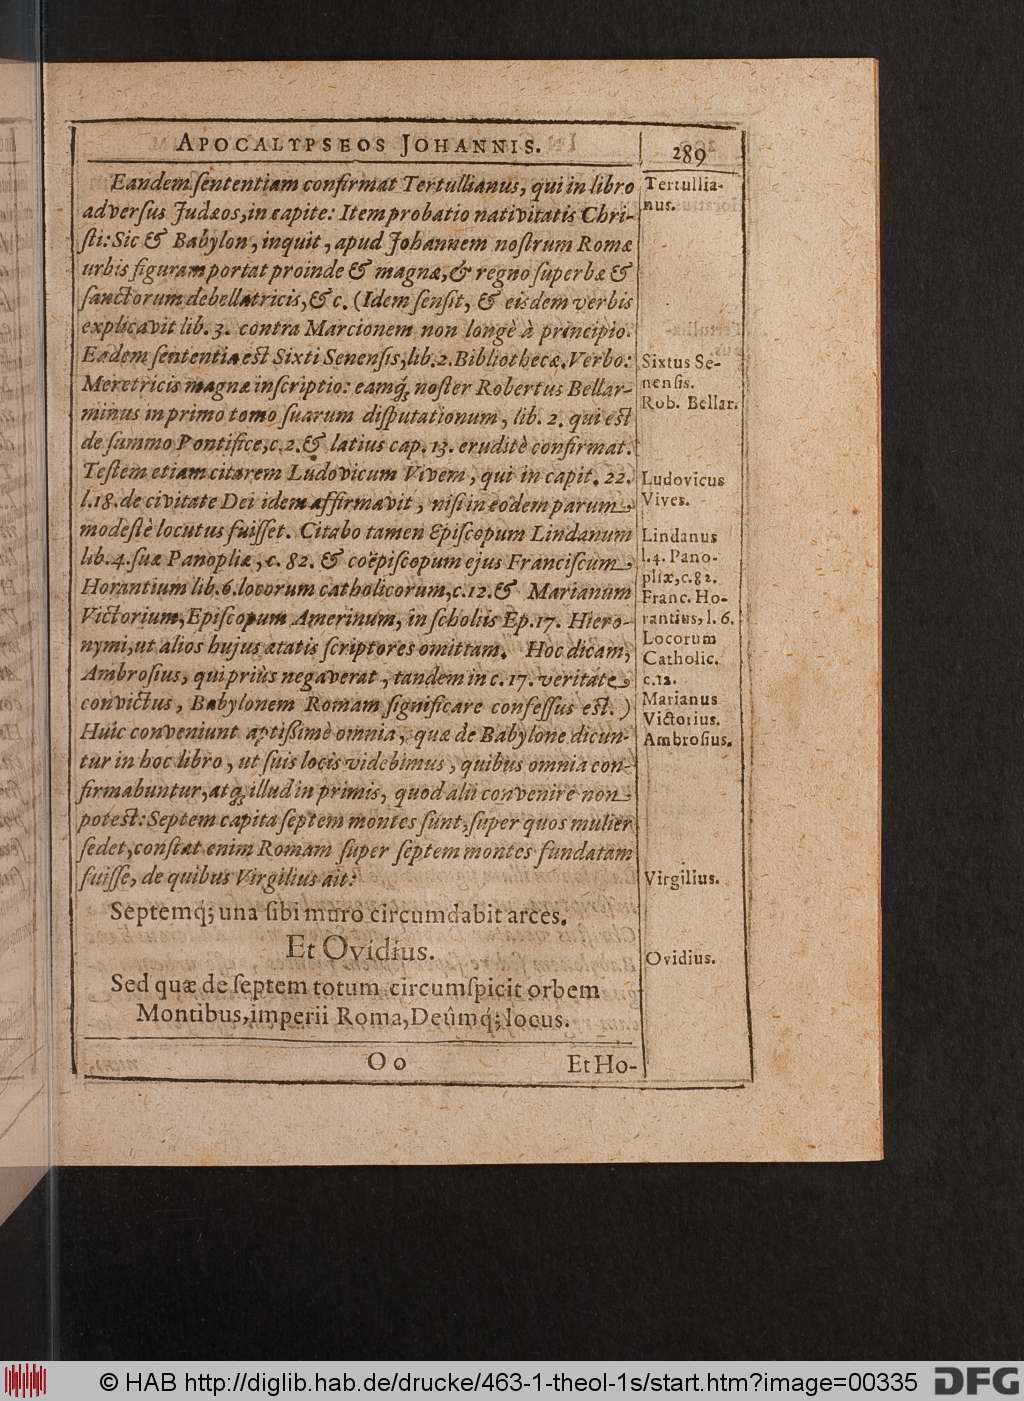 APOCALYPSEOS JOHANNIS.
289
Eandem sententiam confirmat Tertullianus, qui in libro
adversus Judæos, in capite: Item probatio nativitatis Chri-
sti: Sic & Babylon, inquit, apud Johannem nostrum Romæ
urbis figuram portat proinde & magnæ, & regno superbæ &
sanctorum debellatricis, & c. (Idem sensit, & eisdem verbis
explicavit lib. 3. contra Marcionem non longè à principio.
Eadem sententia est Sixti Senensis, lib. 2. Bibliothecæ, Verbo:
Meretricis magnæ inscriptio: eamq; noster Robertus Bellar-
minus in primo tomo suarum disputationum, lib. 2. qui est
de summo Pontifice, c. 2. & latius cap. 13. eruditè confirmat.
Testem etiam citarem Ludovicum Vivem, qui in capit. 22.
l. 18. de civitate Dei idem affirmavit, nisi in eodem parum
modestè locutus fuisset. Citabo tamen Episcopum Lindanum
lib. 4. suæ Panopliæ, c. 82. & coëpiscopum ejus Franciscum
Horantium lib. 6. locorum catholicorum, c. 12. & Marianum
Victorium, Episcopum Amerinum, in scholiis Ep. 17. Hiero-
nymi, ut alios hujus ætatis scriptores omittam. Hoc dicam,
Ambrosius, qui priùs negaverat, tandem in c. 17. veritate
convictus, Babylonem Romam significare confessus est.)
Huic conveniunt aptissimè omnia, quæ de Babylone dicun-
tur in hoc libro, ut suis locis videbimus, quibus omnia con-
firmabuntur, atq; illud in primis, quod alii convenire non
potest: Septem capita septem montes sunt, super quos mulier
sedet, constat enim Romam super septem montes fundatam
fuisse, de quibus Virgilius ait:
Septemq; una sibi muro circumdabit arces.
Et Ovidius.
Sed quæ de septem totum circumspicit orbem
Montibus, imperii Roma, Deûmq; locus.
O o
Et Ho-
Tertullia-
nus.
Sixtus Se-
nensis.
Rob. Bellar.
Ludovicus
Vives.
Lindanus
l. 4. Pano-
pliæ, c. 82.
Franc. Ho-
rantius, l. 6.
Locorum
Catholic.
c. 12.
Marianus
Victorius.
Ambrosius.
Virgilius.
Ovidius.
© HAB http://diglib.hab.de/drucke/463-1-theol-1s/start.htm?image=00335
DFG